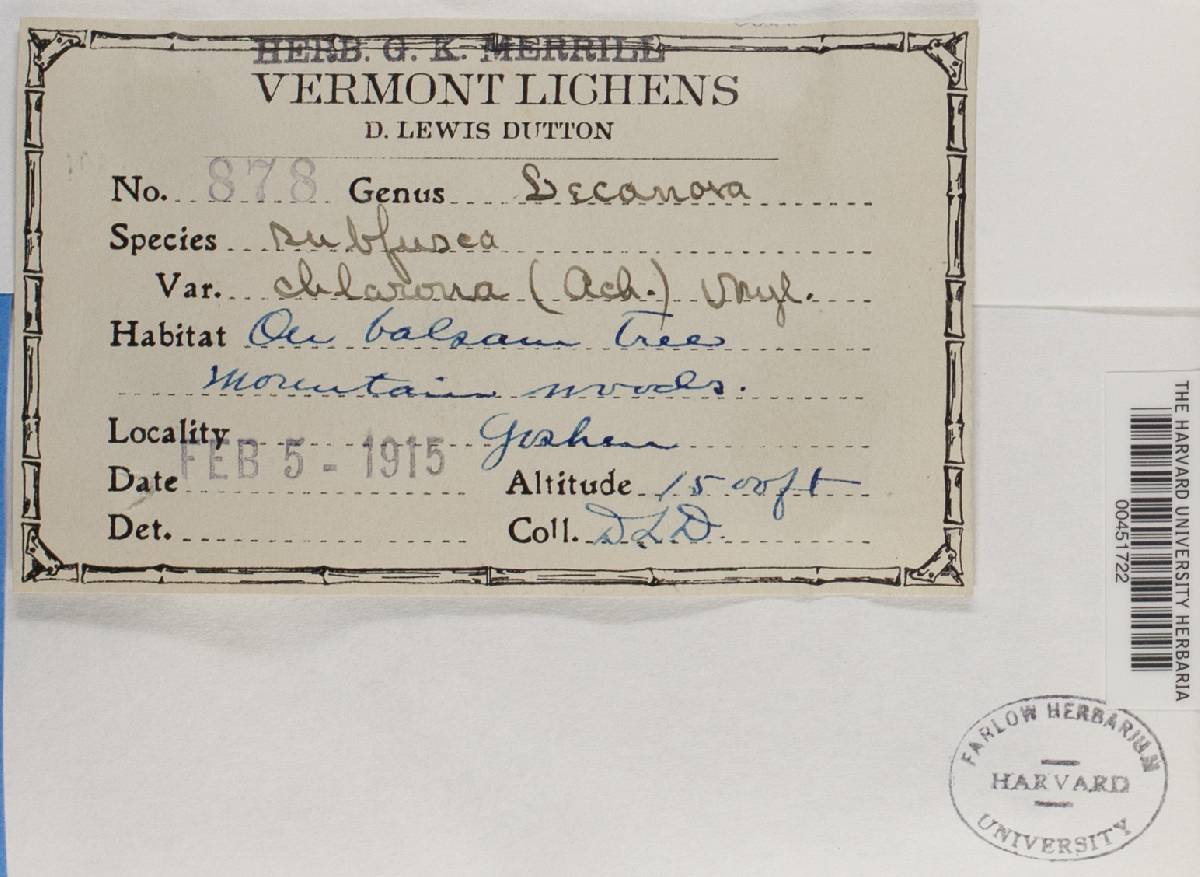 HERB. G. K. MERRILL
VERMONT LICHENS
D. LEWIS DUTTON
No. 878 Genus Lecanora
Species subfusca
Var. chlarona (Ach.) Nyl.
Habitat On balsam Tree
Mountain woods.
Locality Goshen
Date FEB 5 - 1915 Altitude 1500 ft
Det. Coll. DLD
THE HARVARD UNIVERSITY HERBARIA
00451722
FARLOW HERBARIUM
HARVARD
UNIVERSITY